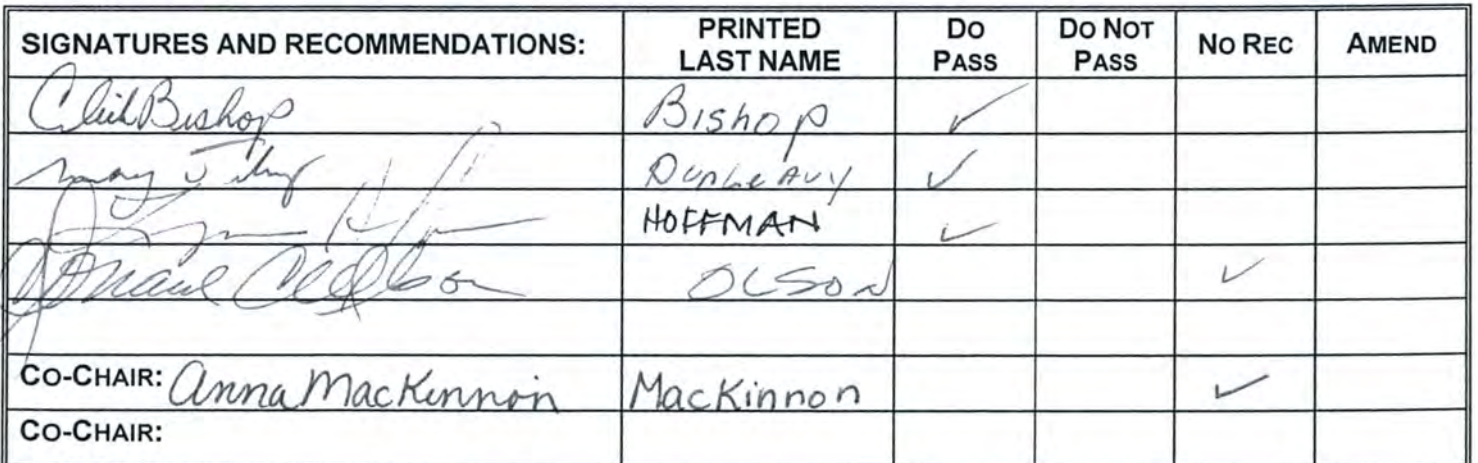 SIGNATURES AND RECOMMENDATIONS: PRINTED LAST NAME DO PASS DO NOT PASS NO REC AMEND
Click Bishop Bishop ✓
Dunleavy ✓
HOFFMAN ✓
Olson OLSON ✓
CO-CHAIR: Anna MacKinnon MacKinnon ✓
CO-CHAIR: